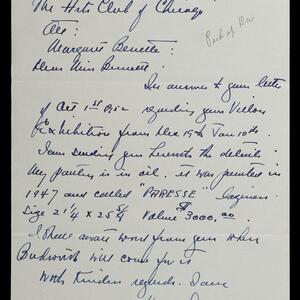 The Arts Club of Chicago
Att:
Margaret Bennett:
Dear Miss Bennett.
In answer to your letter
of Oct 1st 1952 regarding your
Exhibition from Dec 19th to Jan 10th.
I am sending you herewith the details.
My painting is in oil. it was painted in
1947 and called "PARESSE"
Size 21 1/4 x 25 5/8 Value $3000,00.
I shall await word from you when
Budworth will come for it
With kindest regards. I am